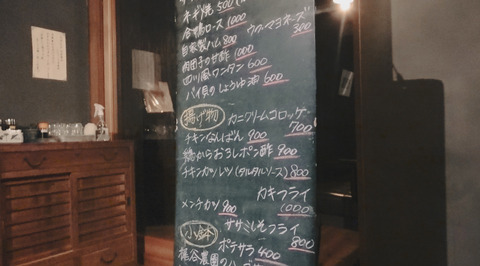 ネギ焼 500
合鴨ロース 1000
ウフ・マヨネーズ 300
自家製ハム 800
肉団子の甘酢 1000
四川風ワンタン 600
バイ貝のしょうゆ油 600
揚げ物
カニクリームコロッケ 700
チキンなんばん 900
鶏からおろしポン酢 900
チキンカツレツ(タルタルソース) 800
カキフライ 1000
メンチカツ 900
ササミしそフライ 800
小鉢
ポテサラ 400